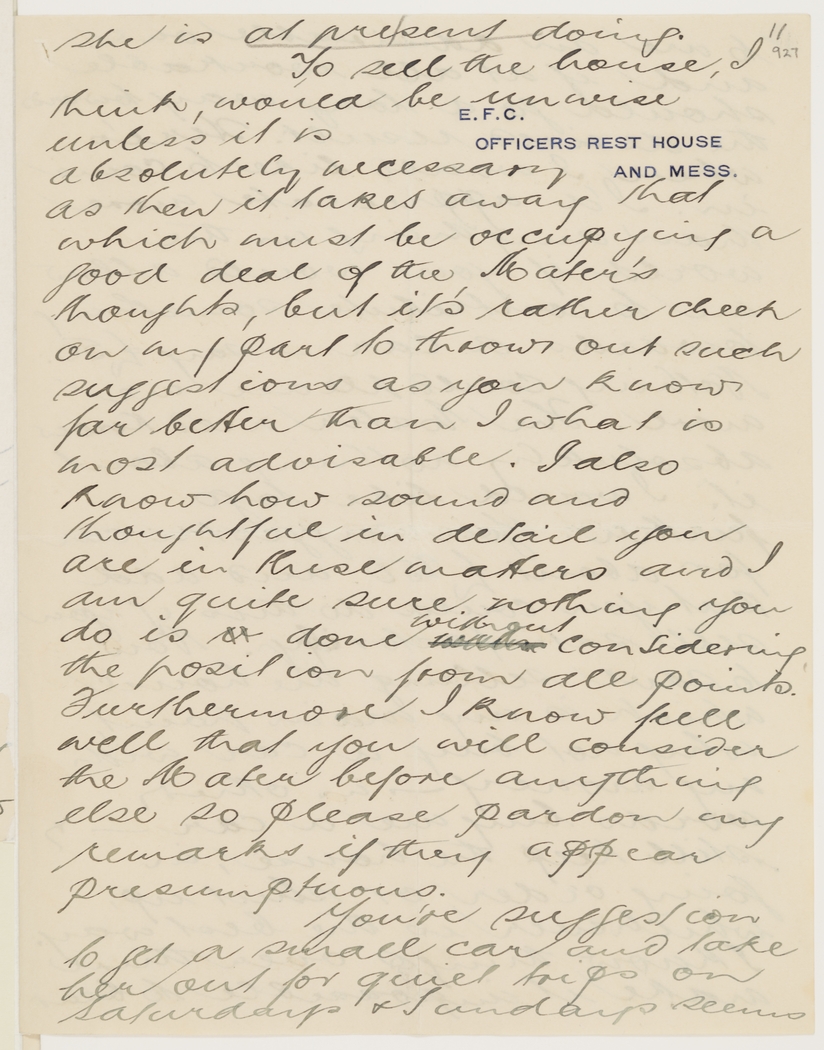 she is at present doing.
11
927
To sell the house, I
think, would be unwise
E.F.C.
OFFICERS REST HOUSE
AND MESS.
unless it is
absolutely necessary
as then it takes away that
which must be occupying a
good deal of the Mater's
thoughts, but it's rather cheek
on my part to throw out such
suggestions as you know
far better than I what is
most advisable. I also
know how sound and
thoughtful in detail you
are in these matters and I
am quite sure nothing you
do is done without considering
the position from all points.
Furthermore I know full
well that you will consider
the Mater before anything
else so please pardon my
remarks if they appear
presumptuous.
You're suggestion
to get a small car and take
her out for quiet trips on
Saturdays & Sundays seems